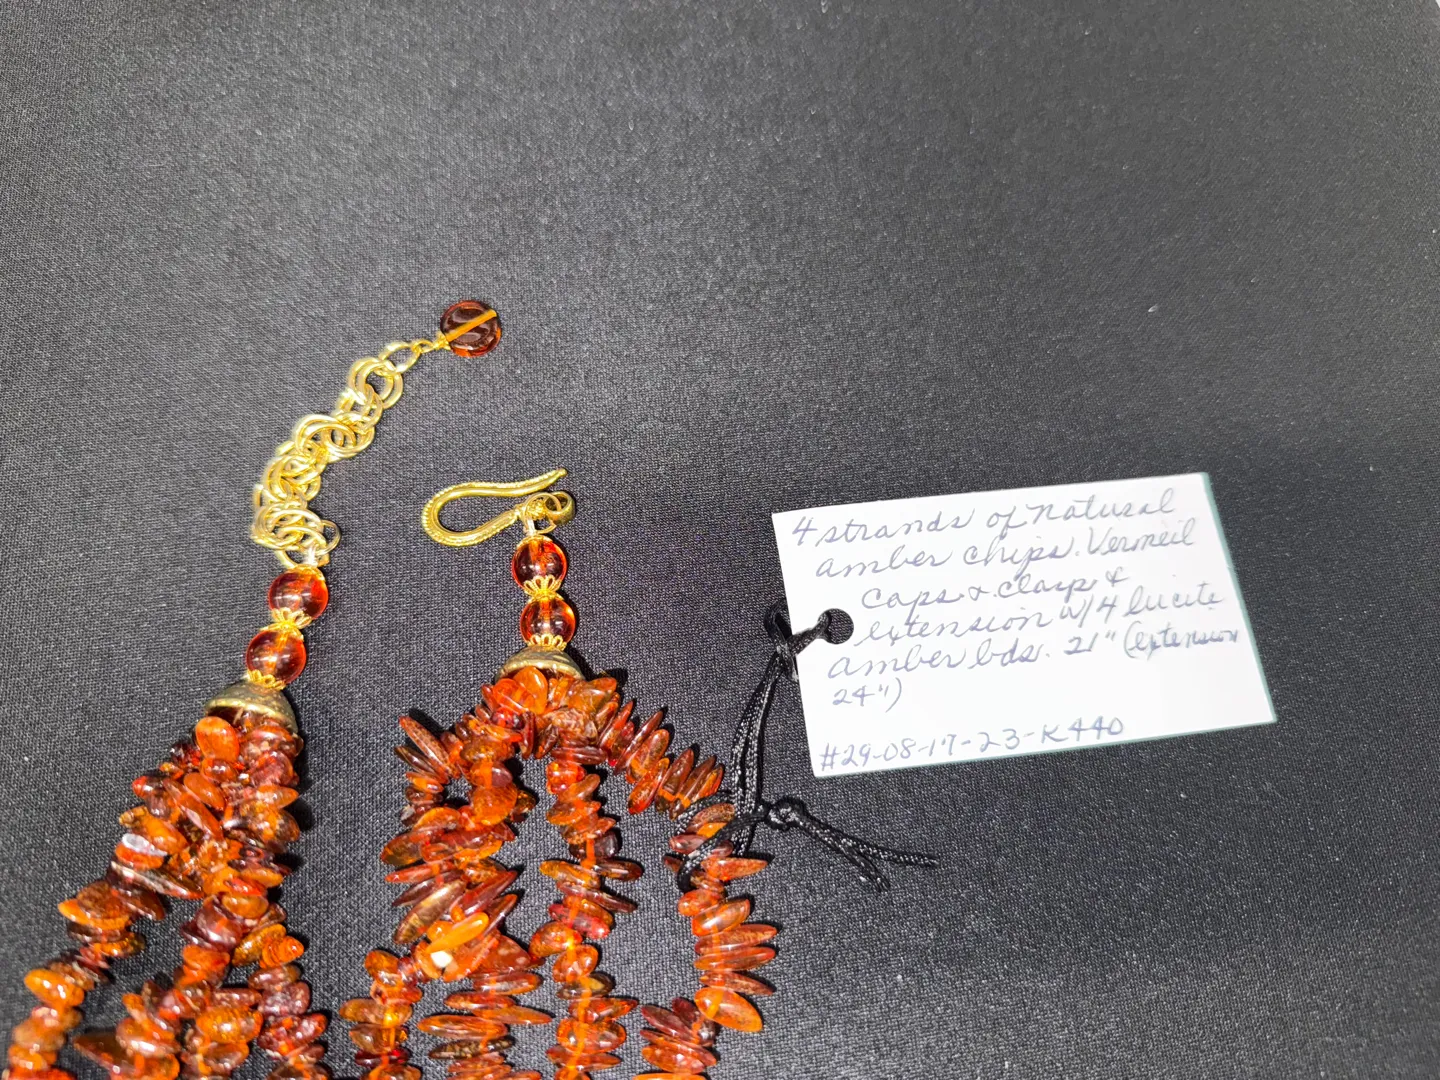 4 strands of natural
amber chips. Vermeil
caps & clasp &
extension w/ 4 lucite
amber bds. 21" (extension
24")
#29-08-17-23-K440